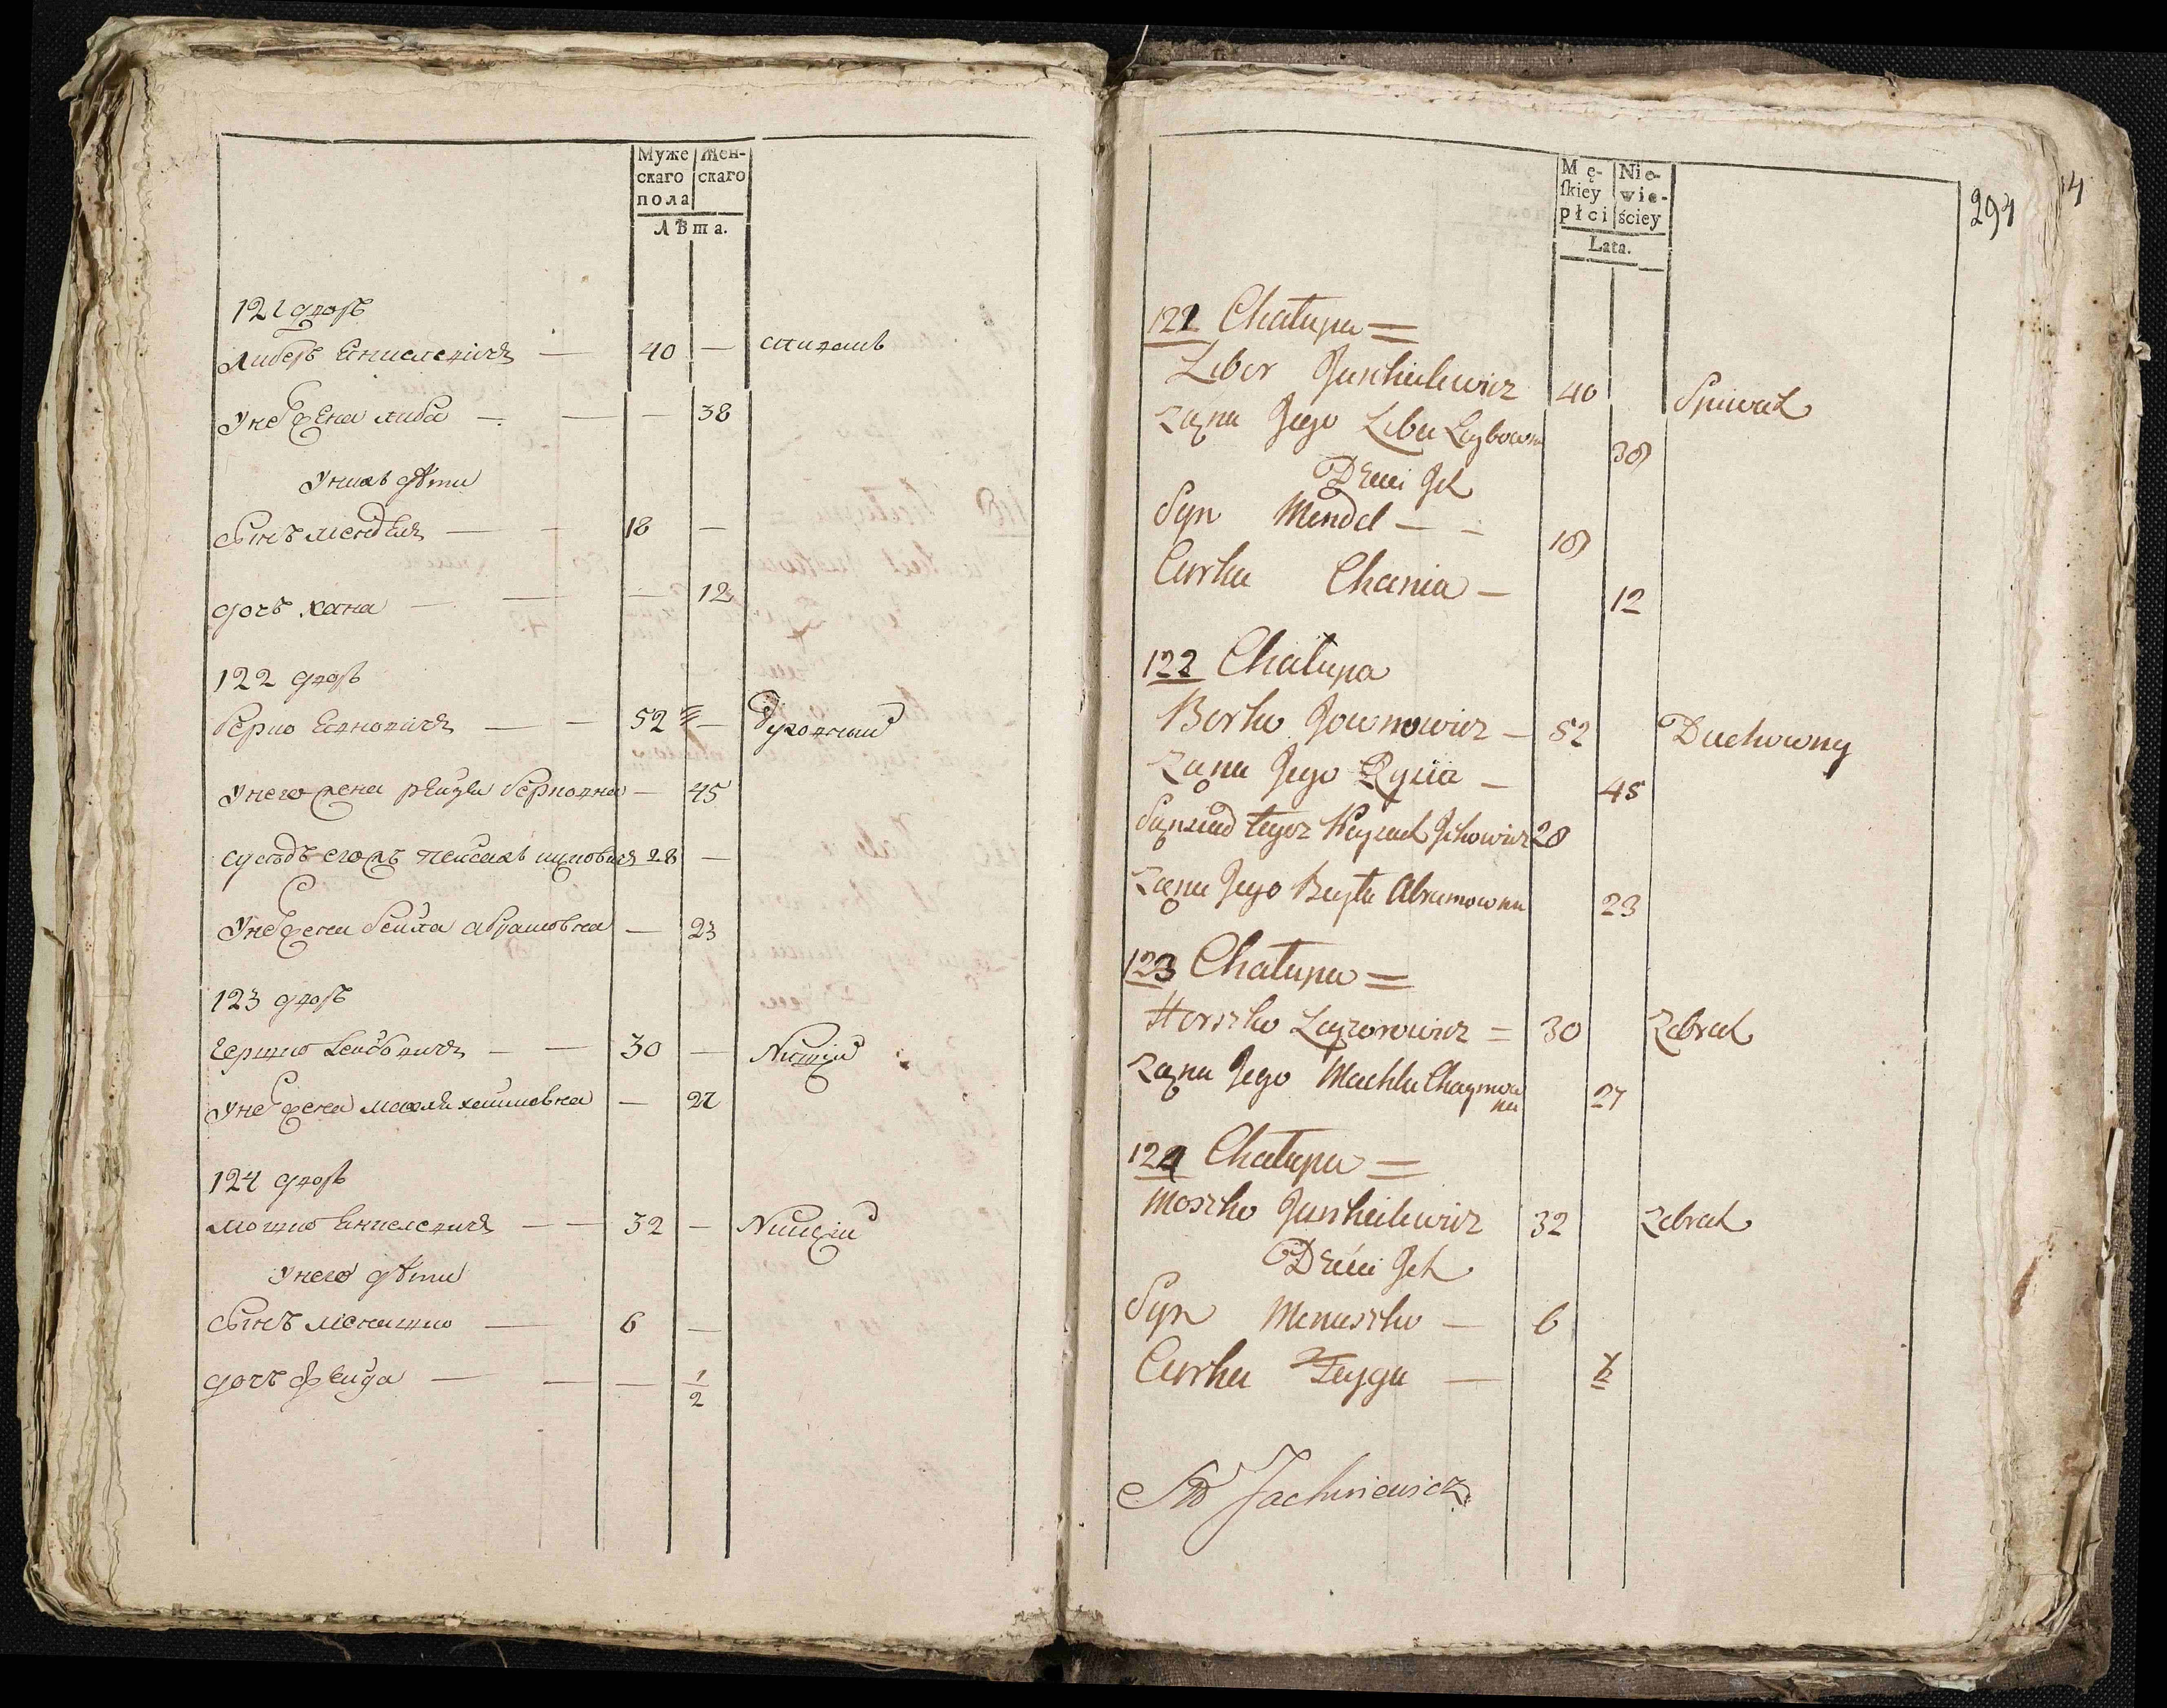 Муже
скаго
пола
Жен-
скаго
Лѣта.
121 дворъ
Либеръ Енкелевичъ — 40 — спивакъ
У него жена либа — — 38
У нихъ дѣти
сынъ мендель — 18 —
дочь хана — — 12
122 дворъ
берко Евновичъ — 52 — духовный
У него жена рейза берковна — 45
сусѣдъ его жъ пейсахъ ицковичъ 28 —
У него жена бейла абрамовна — 23
123 дворъ
гершко Лейзоровичъ — 30 — Нищій
У него жена махля хаимовна — 27
124 дворъ
мошко Енкелевичъ — 32 — Нищій
У него дѣти
сынъ менашко — 6 —
дочь фейга — — 1/2
Mę-
skiey
płci
Nie-
wie-
ściey
Lata.
294
121 Chałupa =
Libor Junkielewicz 40 Spiwak
Zona Jego Liba Leybowna 38
Dzieci Ich
Syn Mendel — 18
Curka Chania — 12
122 Chałupa
Berko Jownowicz — 52 Duchowny
Zona Jego Rycia — 45
Sąsiad tegoz Peysach Ickowicz 28
Zona Jego Beyła Abramowna 23
123 Chałupa =
Herszko Leyzorowicz = 30 Zebrak
Zona Jego Machla Chaymowna 27
124 Chałupa =
Moszko Junkielewicz 32 Zebrak
Dzieci Ich
Syn Menaszko — 6
Curka Feyga — 1/2
Jachniewicz